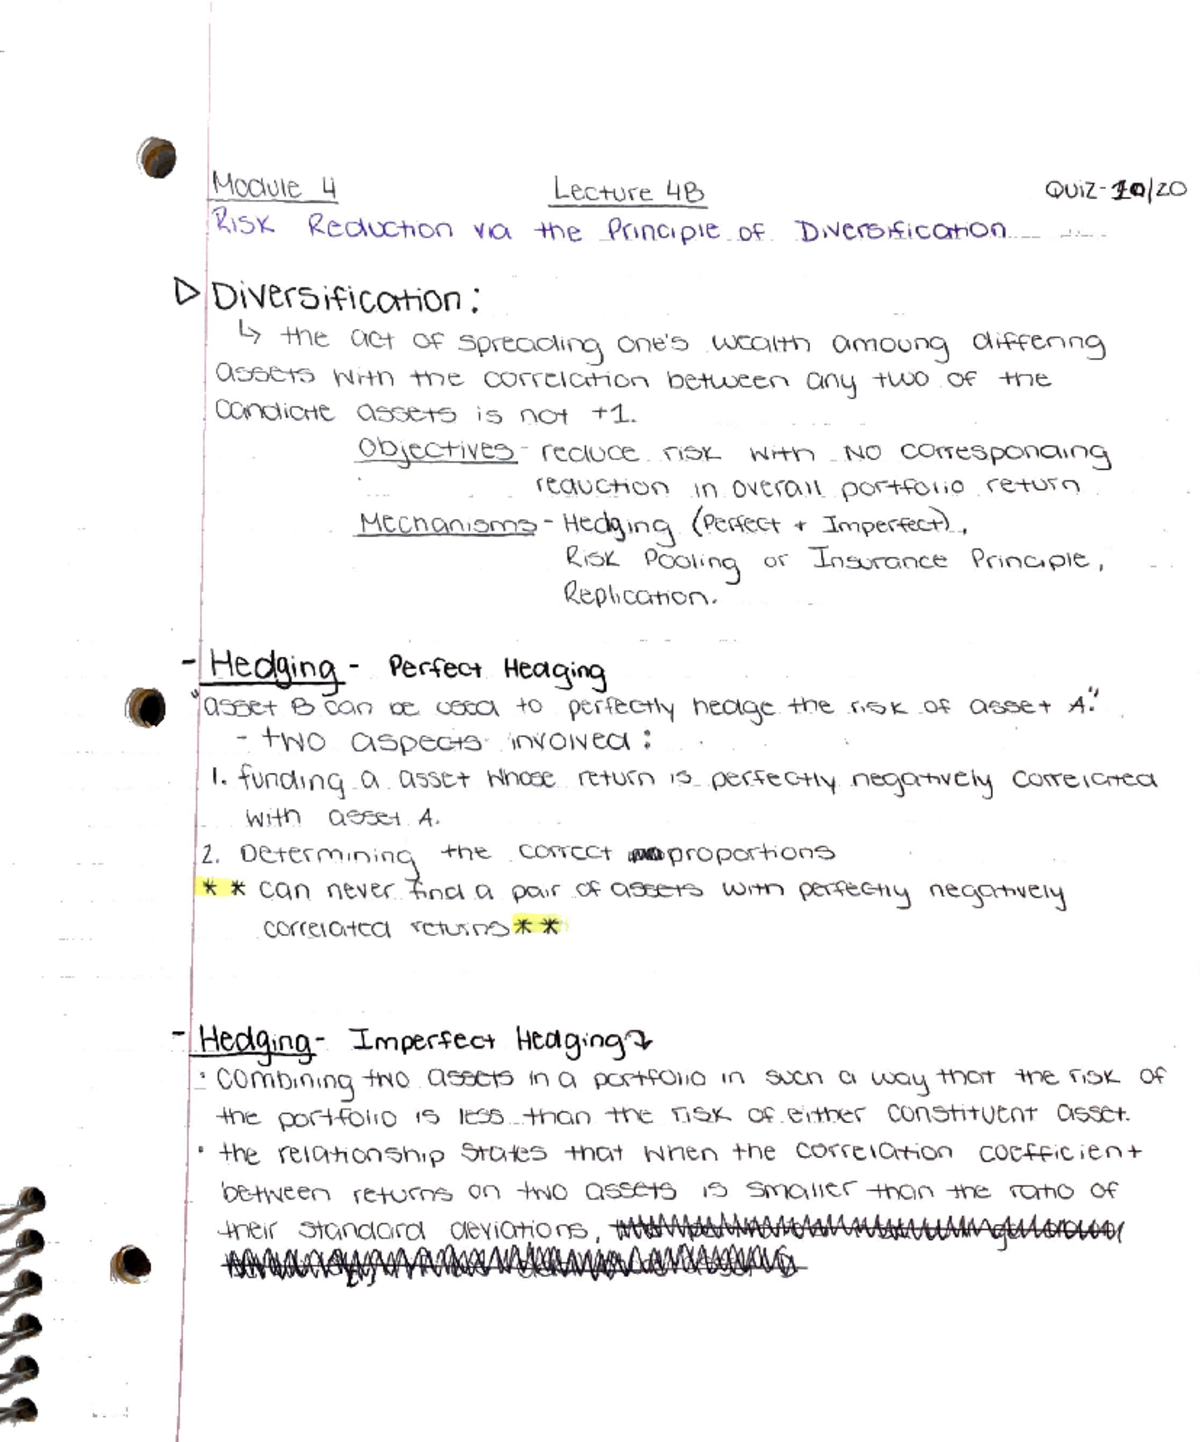 Module 4 Lecture 4B QUIZ-10/20
Risk Reduction via the Principle of Diversification
Diversification:
↳ the act of spreading one's wealth amoung differing
assets with the correlation between any two of the
candiate assets is not +1.
Objectives - reduce risk with NO corresponding
reduction in overall portfolio return
Mechanisms - Hedging (Perfect + Imperfect),
Risk Pooling or Insurance Principle,
Replication.
- Hedging - Perfect Hedging
"asset B can be used to perfectly hedge the risk of asset A."
- two aspects involved:
1. funding a asset whose return is perfectly negatively correlated
with asset A.
2. Determining the correct proportions
** can never find a pair of assets with perfectly negatively
correlated returns **
- Hedging - Imperfect Hedging
· combining two assets in a portfolio in such a way that the risk of
the portfolio is less than the risk of either constituent asset.
· the relationship states that when the correlation coefficient
between returns on two assets is smaller than the ratio of
their standard deviations,